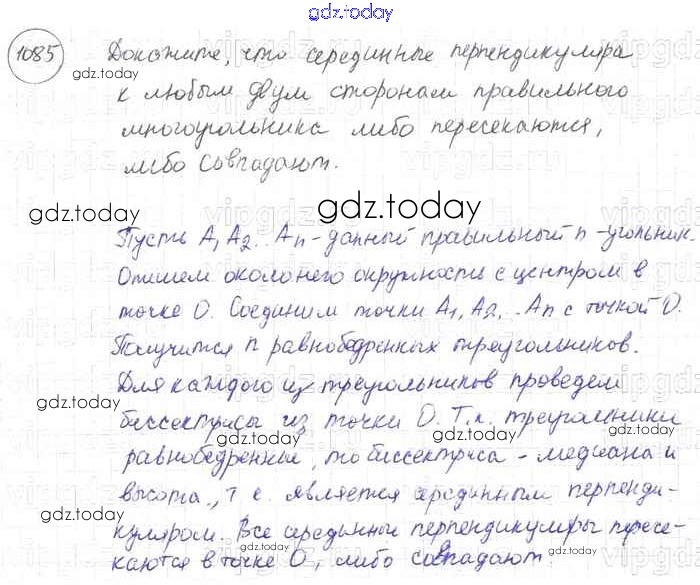 gdz.today
1085 Докажите, что серединные перпендикуляра
gdz.today
к любым двум сторонам правильного
многоугольника либо пересекаются,
либо совпадают.
gdz.today gdz.today
gdz.today
Пусть A1 A2.. An - данный правильный n-угольник.
Опишем около него окружность с центром в
точке O. Соединим точки A1, A2, .. An с точкой O.
Получится n равнобедренных треугольников.
Для каждого из треугольников проведем
gdz.today
биссектрисы из точки O. Т.к. треугольники
gdz.today
равнобедренные, то биссектриса - медиана и
высота, т е. является серединным перпенди-
gdz.today
куляром. Все серединные перпендикуляры пересе-
gdz.today
каются в точке O, либо совпадают.